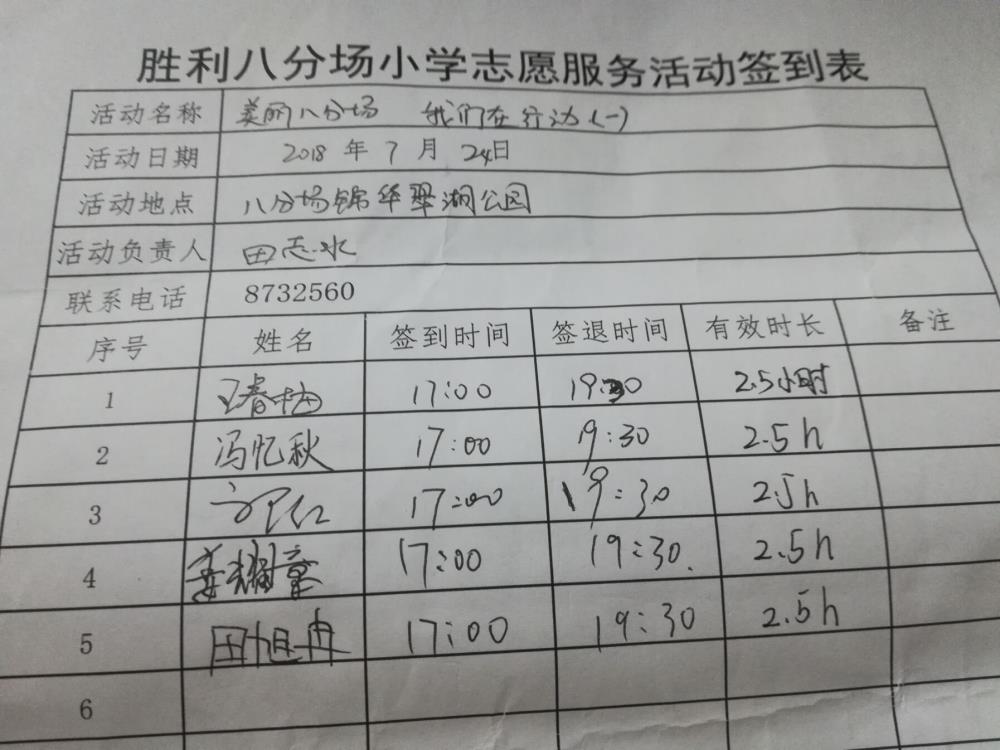 胜利八分场小学志愿服务活动签到表
活动名称 美丽八分场 我们在行动(一)
活动日期 2018 年 7 月 24日
活动地点 八分场锦华翠湖公园
活动负责人 田志水
联系电话 8732560
序号 姓名 签到时间 签退时间 有效时长 备注
1 王春梅 17:00 19:30 2.5小时
2 冯忆秋 17:00 19:30 2.5h
3 17:00 19:30 2.5h
4 姜耀童 17:00 19:30. 2.5h
5 田旭冉 17:00 19:30 2.5h
6